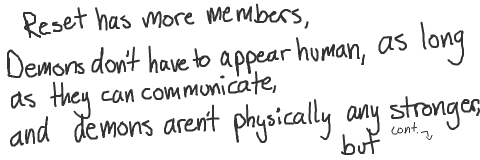 Reset has more members,
Demons don't have to appear human, as long
as they can communicate,
and demons aren't physically any stronger,
but cont.